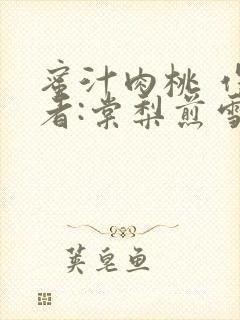 蜜汁肉桃 作
者:棠梨煎雪
荚皂鱼